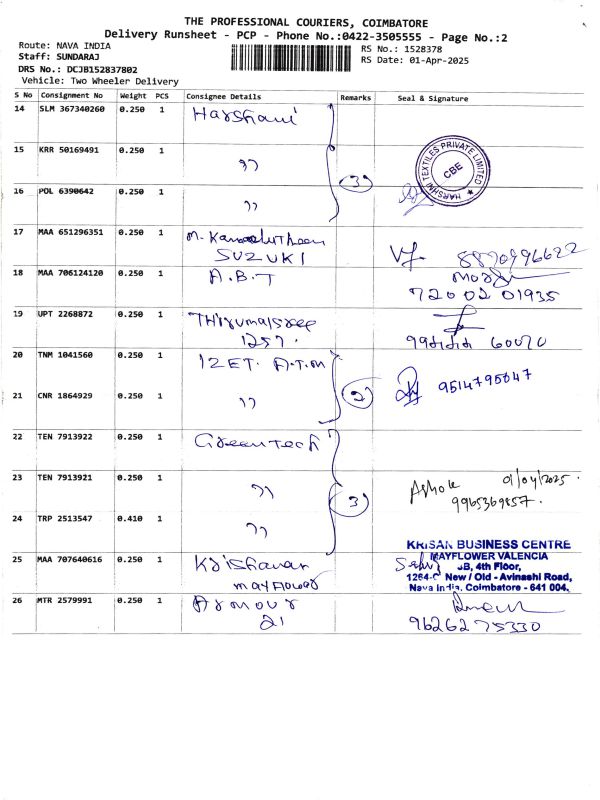 THE PROFESSIONAL COURIERS, COIMBATORE
Delivery Runsheet - PCP - Phone No.:0422-3505555 - Page No.:2
Route: NAVA INDIA
RS No.: 1528378
Staff: SUNDARAJ
RS Date: 01-Apr-2025
DRS No.: DCJB152837802
Vehicle: Two Wheeler Delivery
S No Consignment No Weight PCS Consignee Details Remarks Seal & Signature
14 SLM 367340260 0.250 1 Harshani
15 KRR 50169491 0.250 1 ,, (3) HARSHNI TEXTILES PRIVATE LIMITED CBE
16 POL 6390642 0.250 1 ,,
17 MAA 651296351 0.250 1 M.
SUZUKI
18 MAA 706124120 0.250 1 A.B.T
72002 01935
19 UPT 2268872 0.250 1
1257.
20 TNM 1041560 0.250 1 IZET. A.T.M
21 CNR 1864929 0.250 1 ,, (2) 9514795047
22 TEN 7913922 0.250 1 Greentech
23 TEN 7913921 0.250 1 ,, (3) Ashok 01/04/2025.
9965369857.
24 TRP 2513547 0.410 1 ,,
25 MAA 707640616 0.250 1 Krishanan
mayflower
KRISAN BUSINESS CENTRE
MAYFLOWER VALENCIA
JB, 4th Floor,
1264-C New / Old - Avinashi Road,
Nava India, Coimbatore - 641 004.
26 MTR 2579991 0.250 1 Armour
21
9626275330